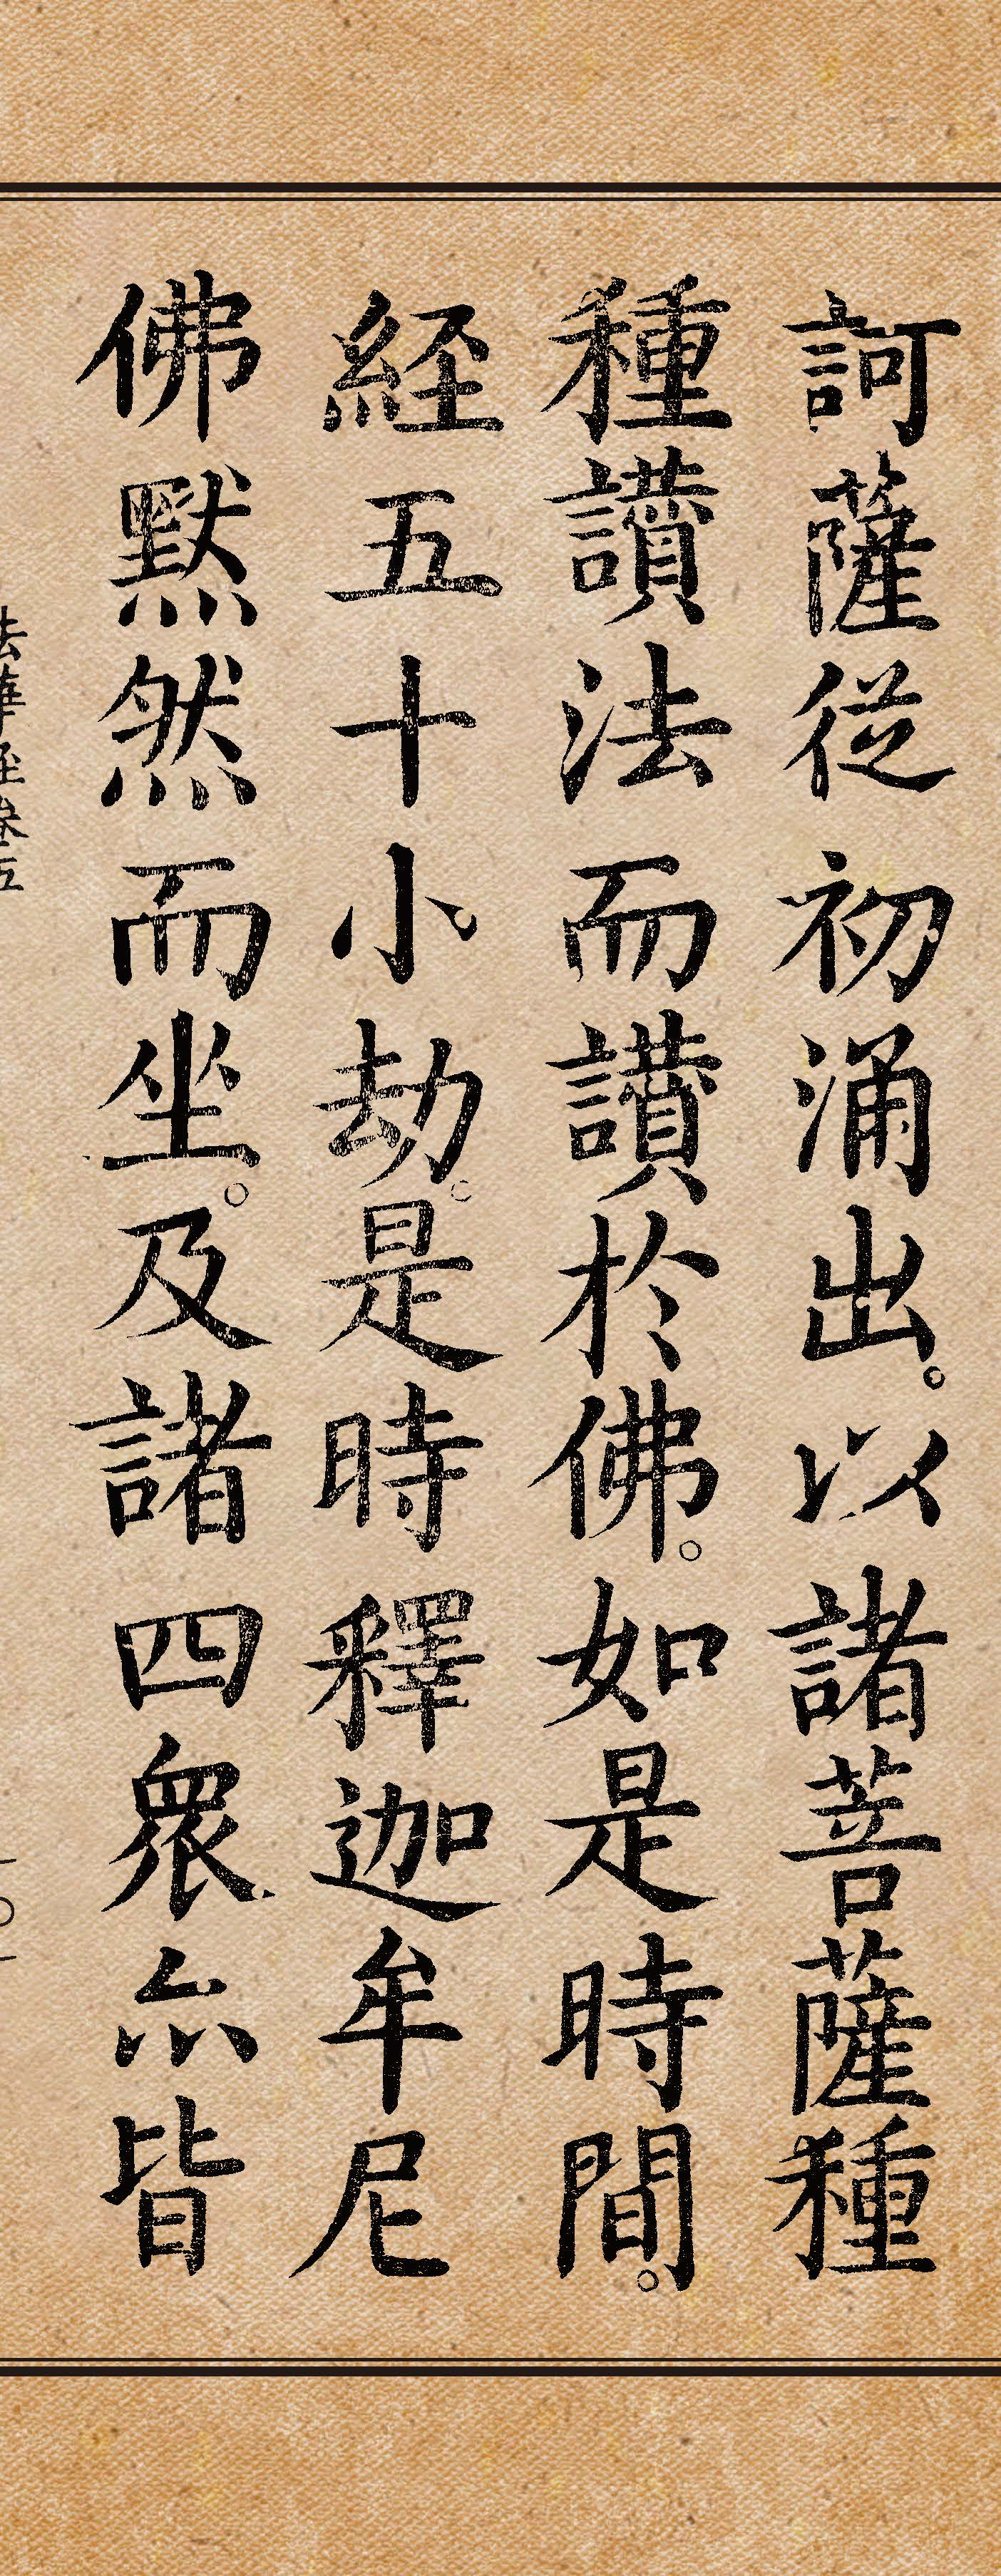 訶薩従初涌出。以諸菩薩種
種讃法而讃於佛。如是時間。
経五十小劫。是時釋迦牟尼
佛黙然而坐。及諸四衆亦皆
法華経巻五
一〇一